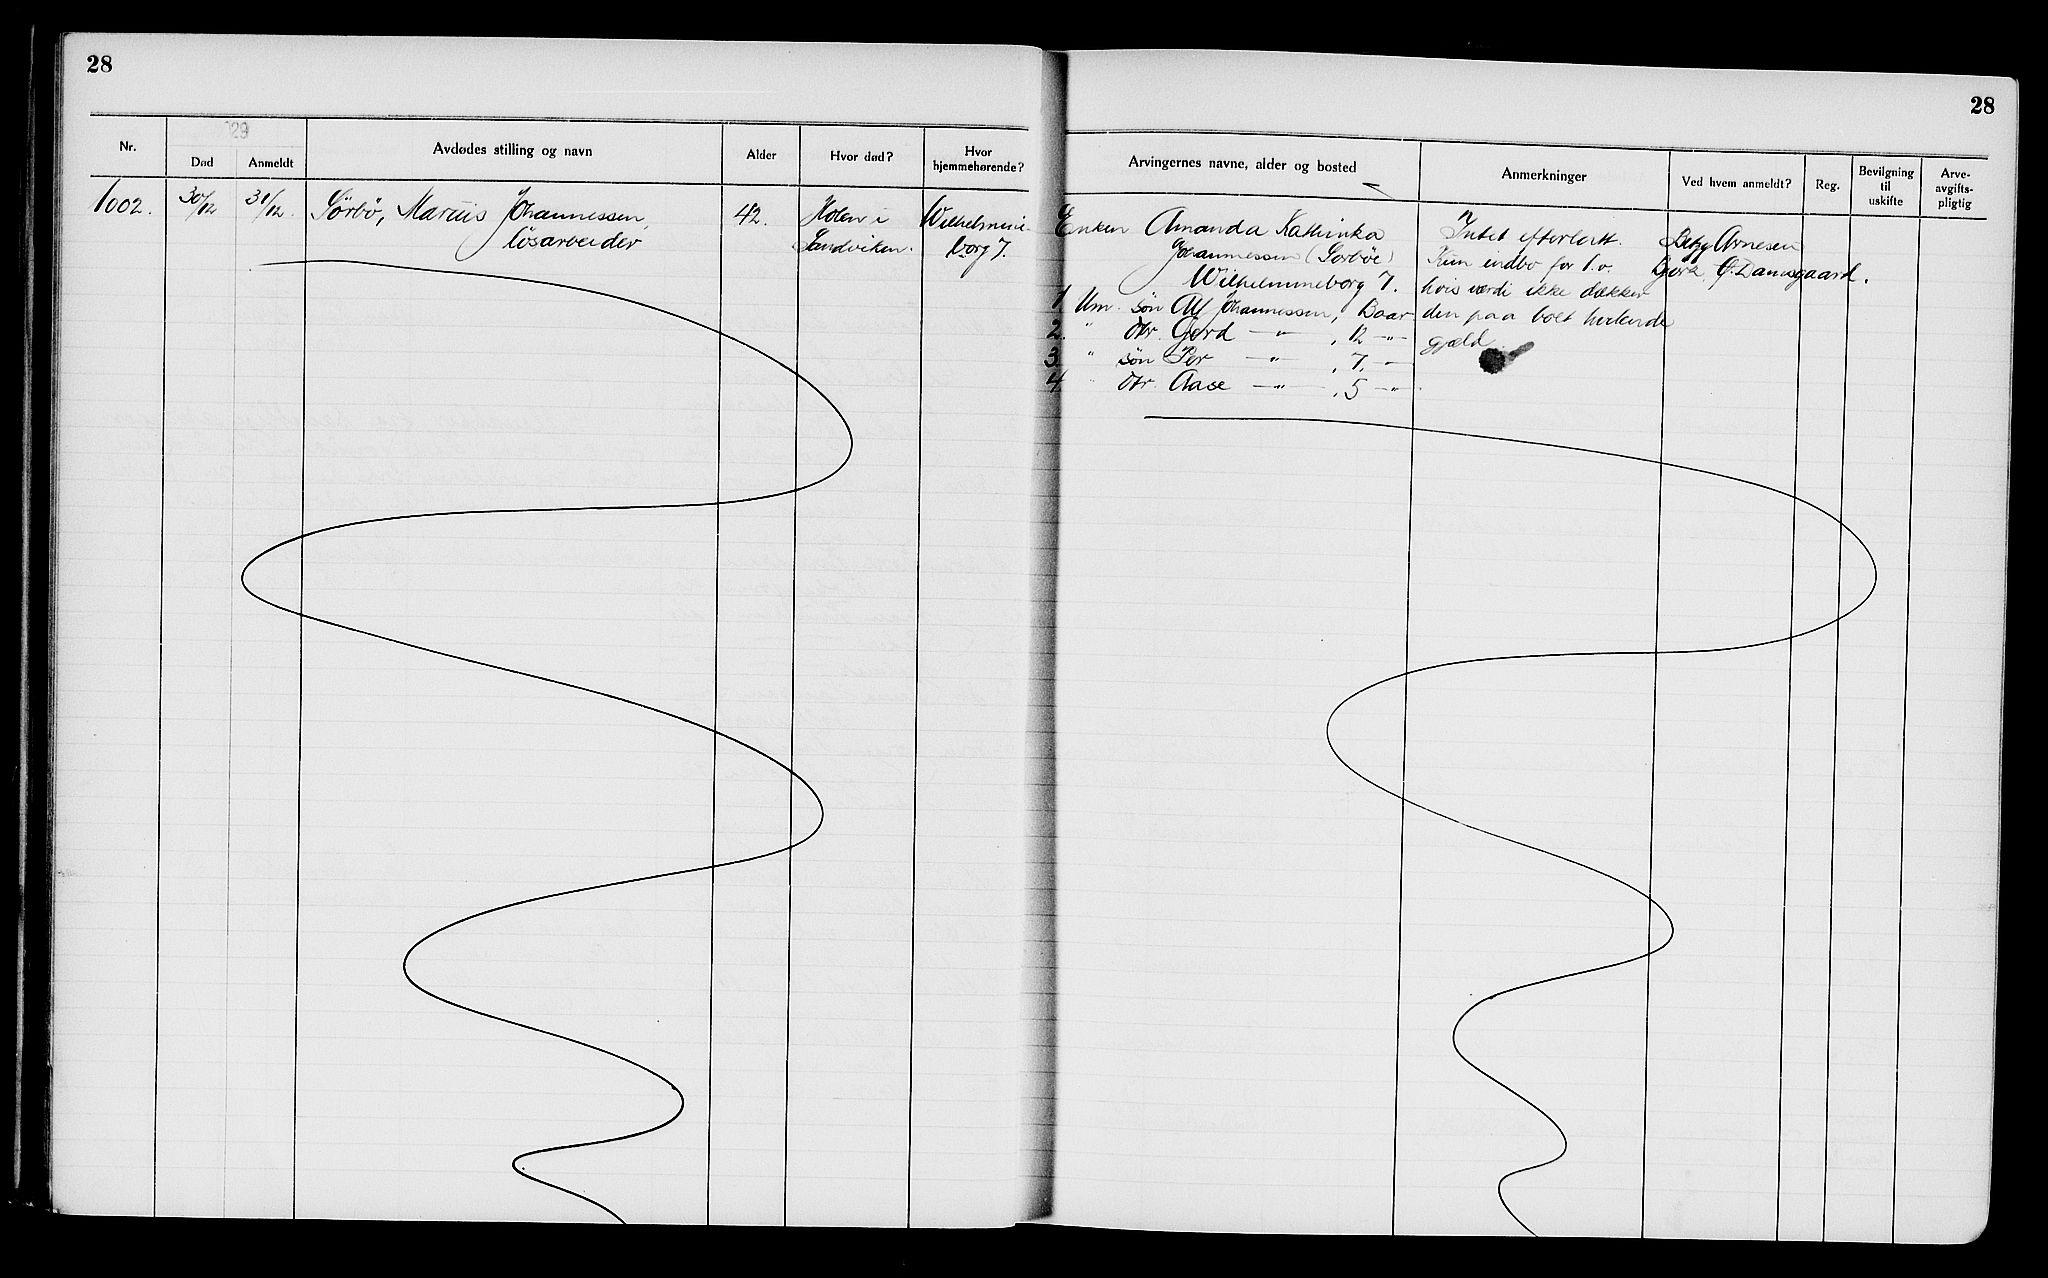 28
28
'29
Nr.
Død
Anmeldt
Avdødes stilling og navn
Alder
Hvor død?
Hvor hjemmehørende?
Arvingernes navne, alder og bosted
Anmerkninger
Ved hvem anmeldt?
Reg.
Bevilgning til uskifte
Arve-avgifts-pligtig
1002.
30/12
31/12.
Sørbø, Marius Johannessen,
løsarbeider
42.
Holen i
Sandviken.
Wilhelmine-
borg 7.
Enken Amanda Kathinka
Johannessen (Sørbøe)
Wilhelmineborg 7.
1 Um. søn Alf Johannessen, 13 aar
2. " dtr. Gerd —"— , 12 —"—
3. " søn Per —"— , 7. —"
4. " dtr. Aase —"— , 5 —"—
Intet efterlatt.
Kun indbo før l.o.
hvis værdi ikke dækker
den paa boet hvilende
gjæld.
Arnesen
Damsgaard.